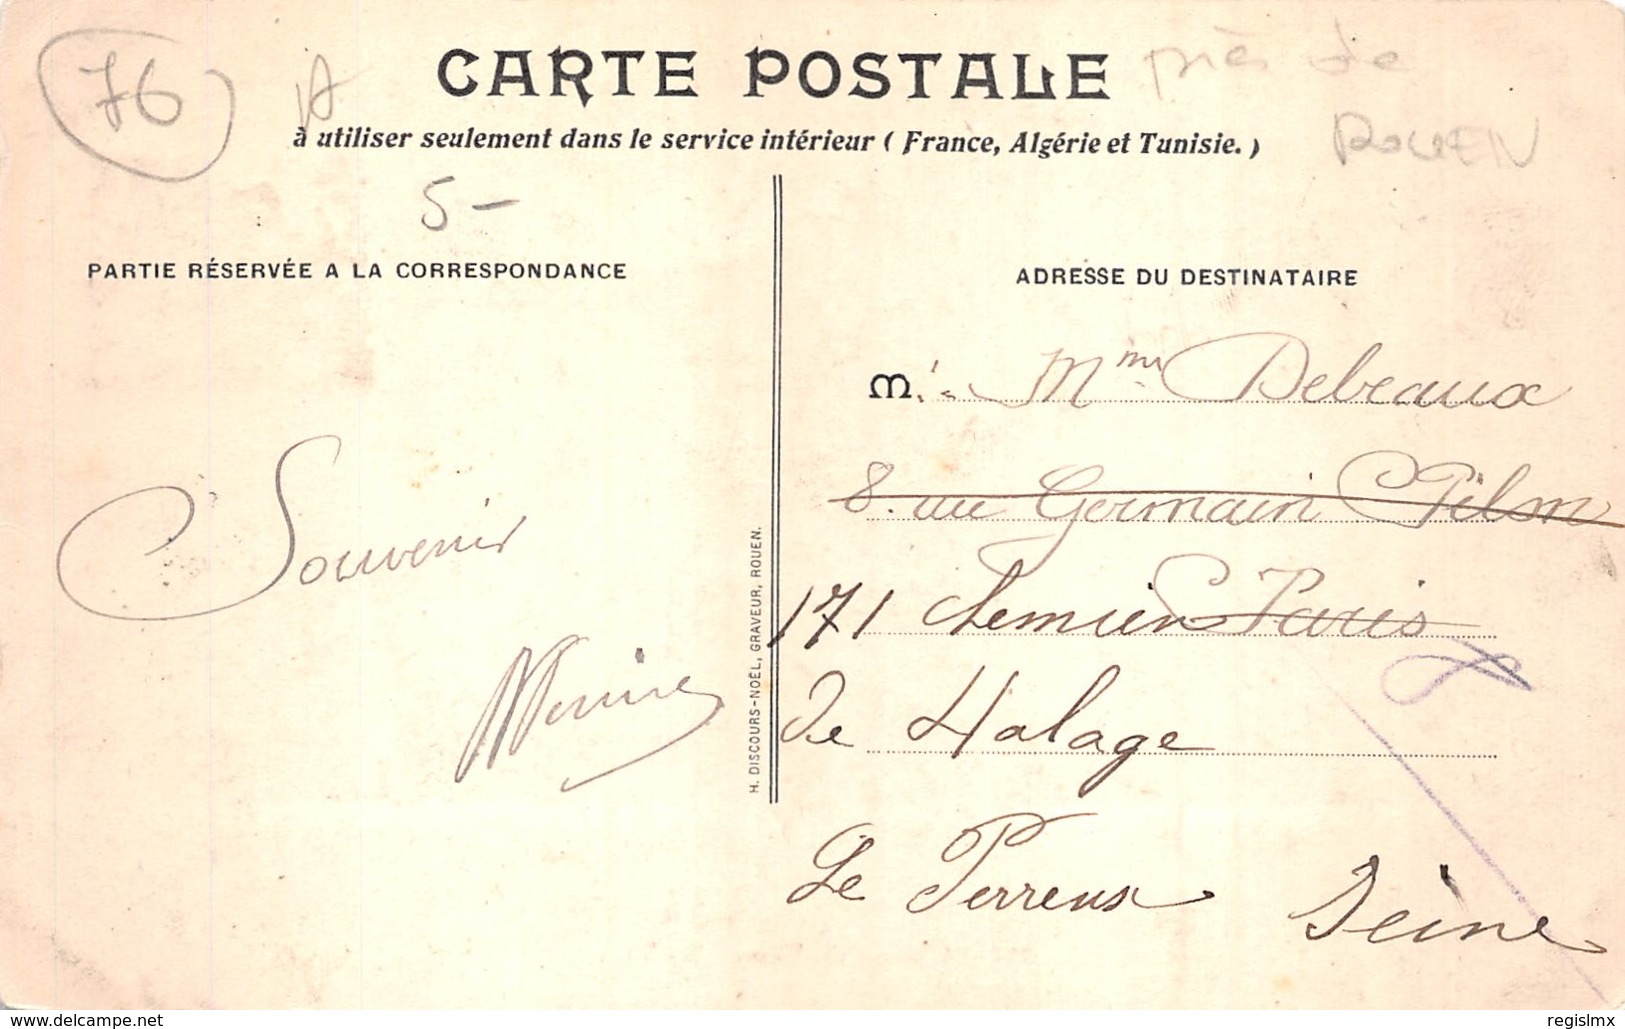 76
A
CARTE POSTALE
près de
ROUEN
à utiliser seulement dans le service intérieur ( France, Algérie et Tunisie. )
5-
PARTIE RÉSERVÉE A LA CORRESPONDANCE
Souvenir
H. DISCOURS-NOËL, GRAVEUR, ROUEN.
ADRESSE DU DESTINATAIRE
M. Mme Debeaux
8. rue Germain Pilon
Paris
171 Chemin
de Halage
Le Perreux Seine
delcampe.net
regislmx